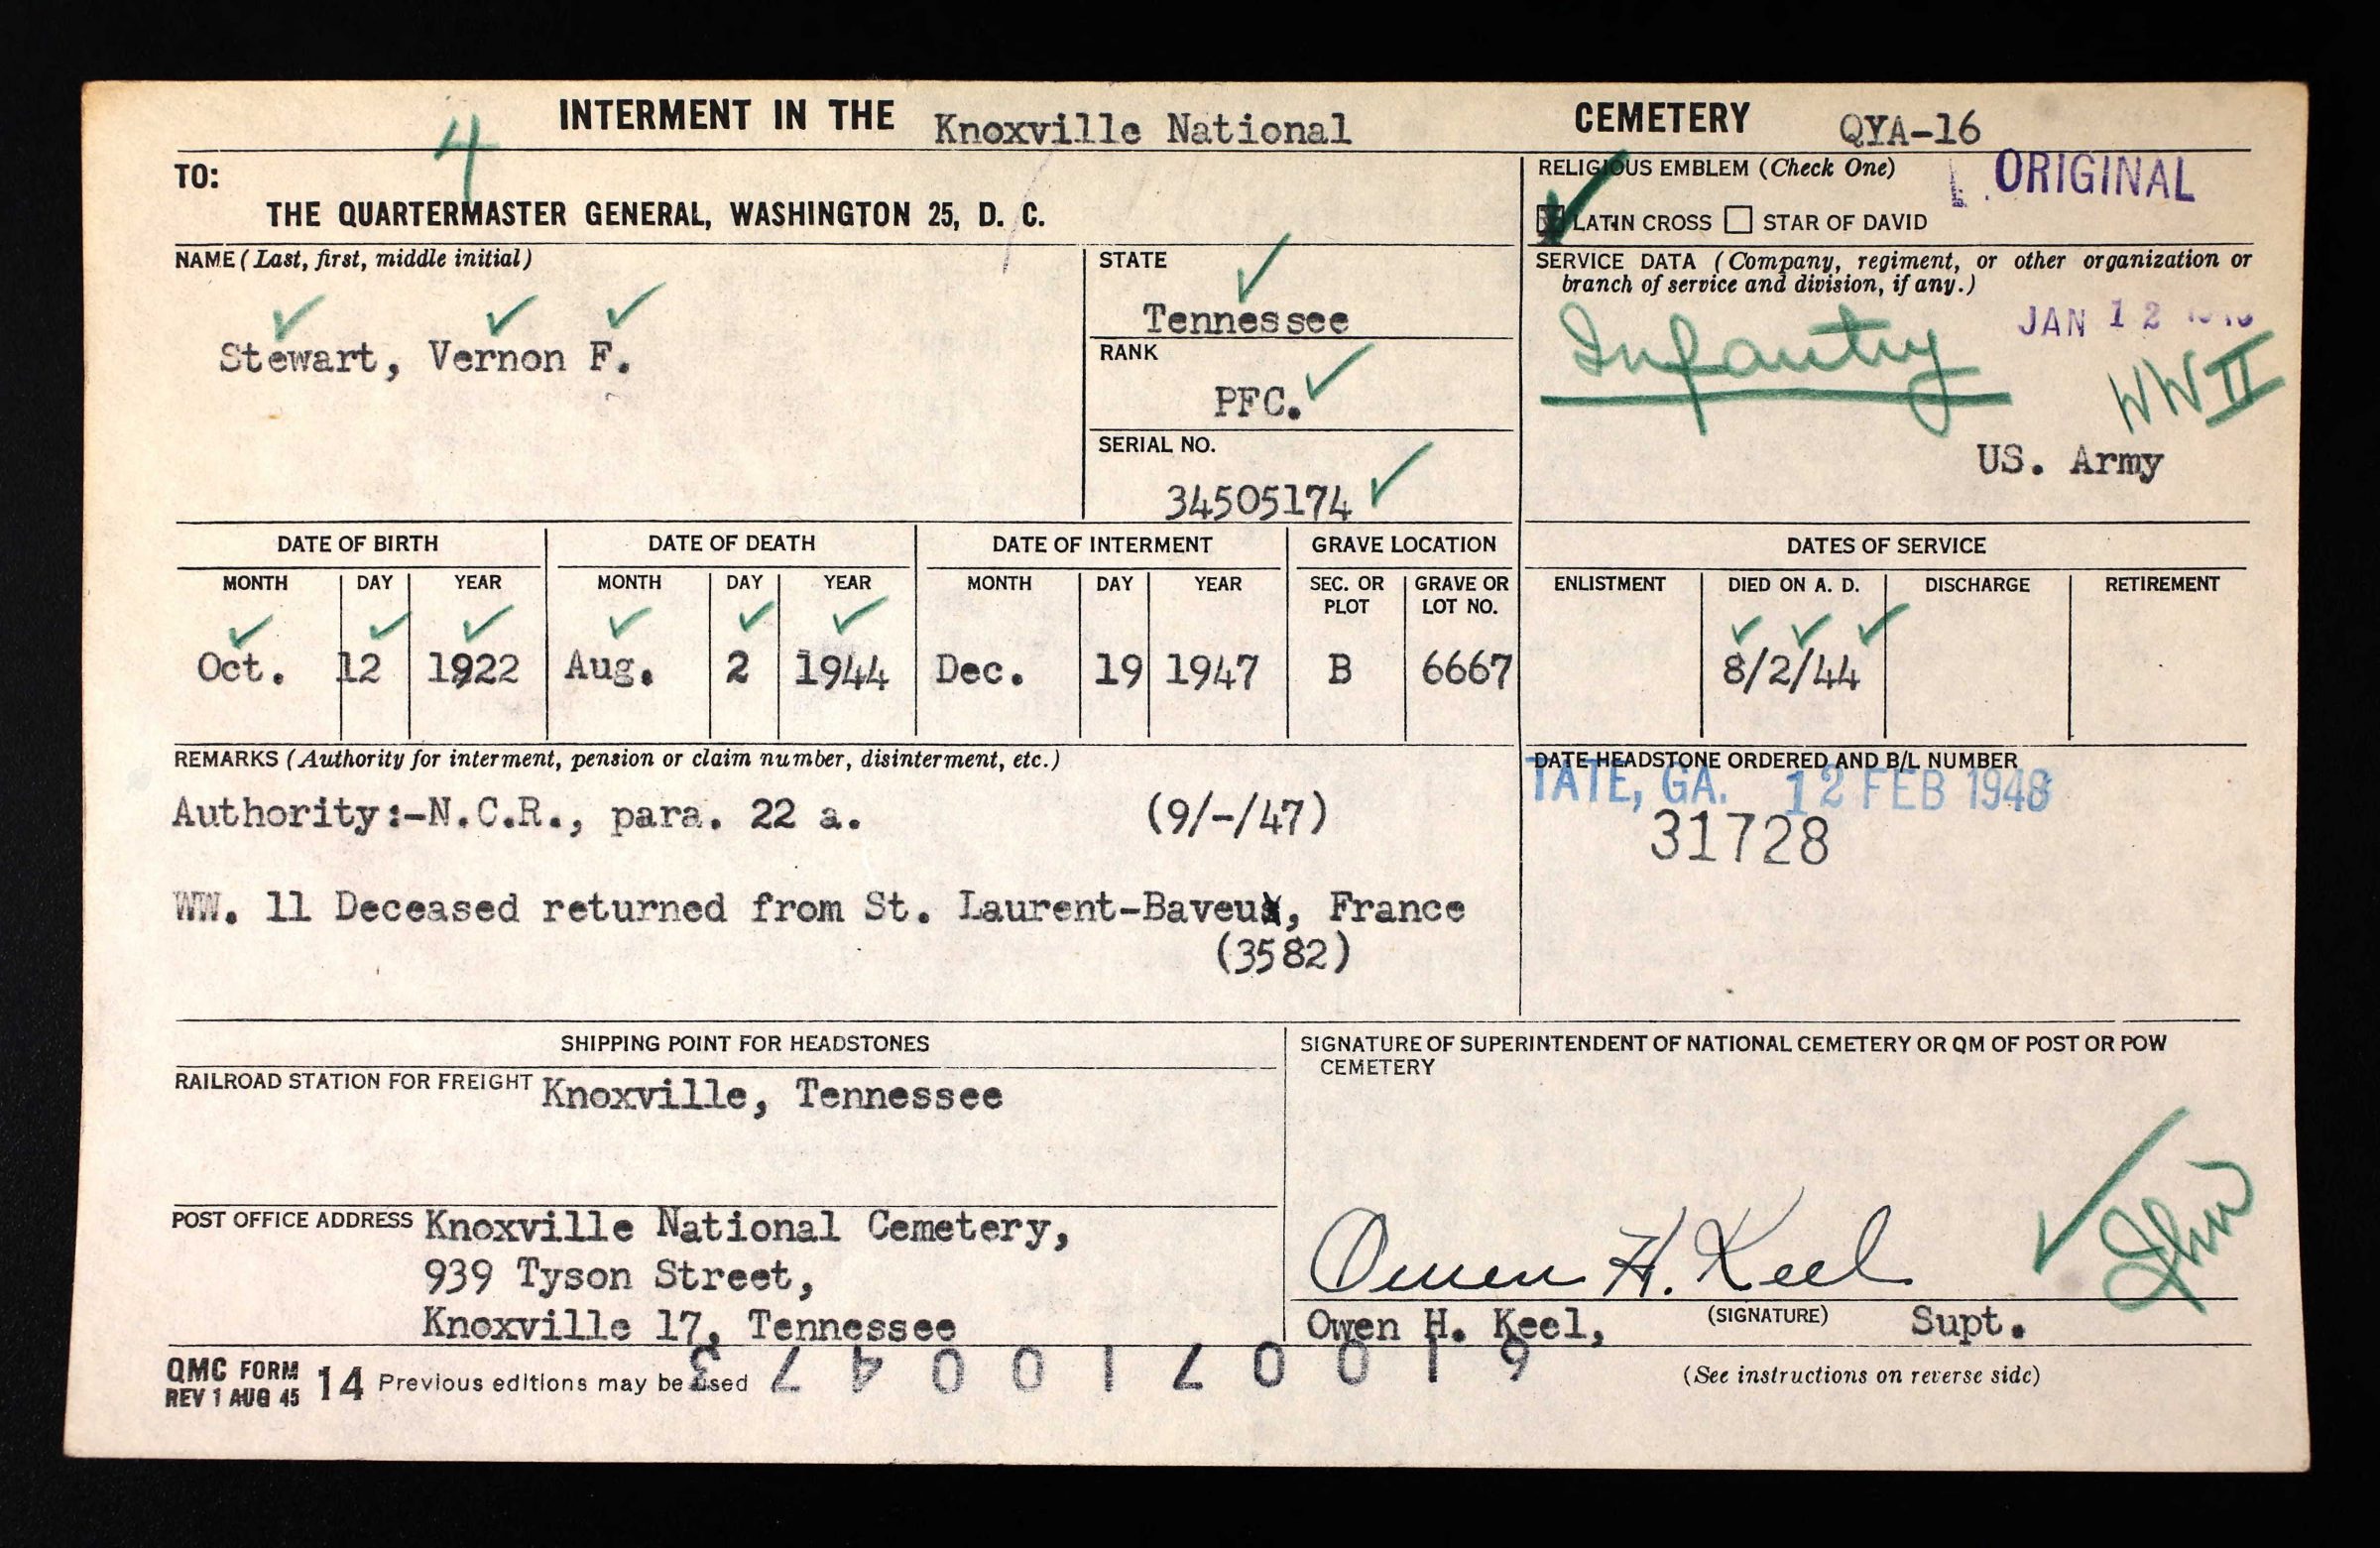 INTERMENT IN THE Knoxville National CEMETERY QYA-16
4
TO:
THE QUARTERMASTER GENERAL, WASHINGTON 25, D. C.
RELIGIOUS EMBLEM (Check One)
ORIGINAL
LATIN CROSS STAR OF DAVID
NAME (Last, first, middle initial)
Stewart, Vernon F.
STATE
Tennessee
RANK
PFC.
SERIAL NO.
34505174
SERVICE DATA (Company, regiment, or other organization or
branch of service and division, if any.)
JAN 12
Infantry
WW II
US. Army
DATE OF BIRTH DATE OF DEATH DATE OF INTERMENT GRAVE LOCATION DATES OF SERVICE
MONTH DAY YEAR MONTH DAY YEAR MONTH DAY YEAR SEC. OR PLOT GRAVE OR LOT NO. ENLISTMENT DIED ON A. D. DISCHARGE RETIREMENT
Oct. 12 1922 Aug. 2 1944 Dec. 19 1947 B 6667 8/2/44
REMARKS (Authority for interment, pension or claim number, disinterment, etc.)
Authority:-N.C.R., para. 22 a. (9/-/47)
WW. 11 Deceased returned from St. Laurent-Baveux, France
(3582)
DATE HEADSTONE ORDERED AND B/L NUMBER
TATE, GA. 12 FEB 1948
31728
SHIPPING POINT FOR HEADSTONES
RAILROAD STATION FOR FREIGHT Knoxville, Tennessee
POST OFFICE ADDRESS Knoxville National Cemetery,
939 Tyson Street,
Knoxville 17, Tennessee
SIGNATURE OF SUPERINTENDENT OF NATIONAL CEMETERY OR QM OF POST OR POW
CEMETERY
Owen H. Keel
Owen H. Keel, (SIGNATURE) Supt.
QMC FORM
REV 1 AUG 45 14 Previous editions may be used
(See instructions on reverse side)